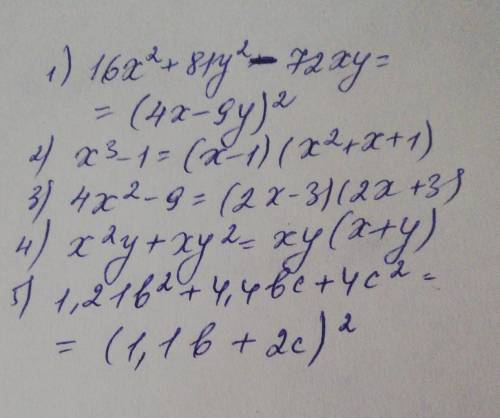 1) 16x² + 81y² - 72xy =
= (4x - 9y)²
2) x³ - 1 = (x - 1)(x² + x + 1)
3) 4x² - 9 = (2x - 3)(2x + 3)
4) x²y + xy² = xy(x + y)
5) 1,21b² + 4,4bc + 4c² =
= (1,1b + 2c)²